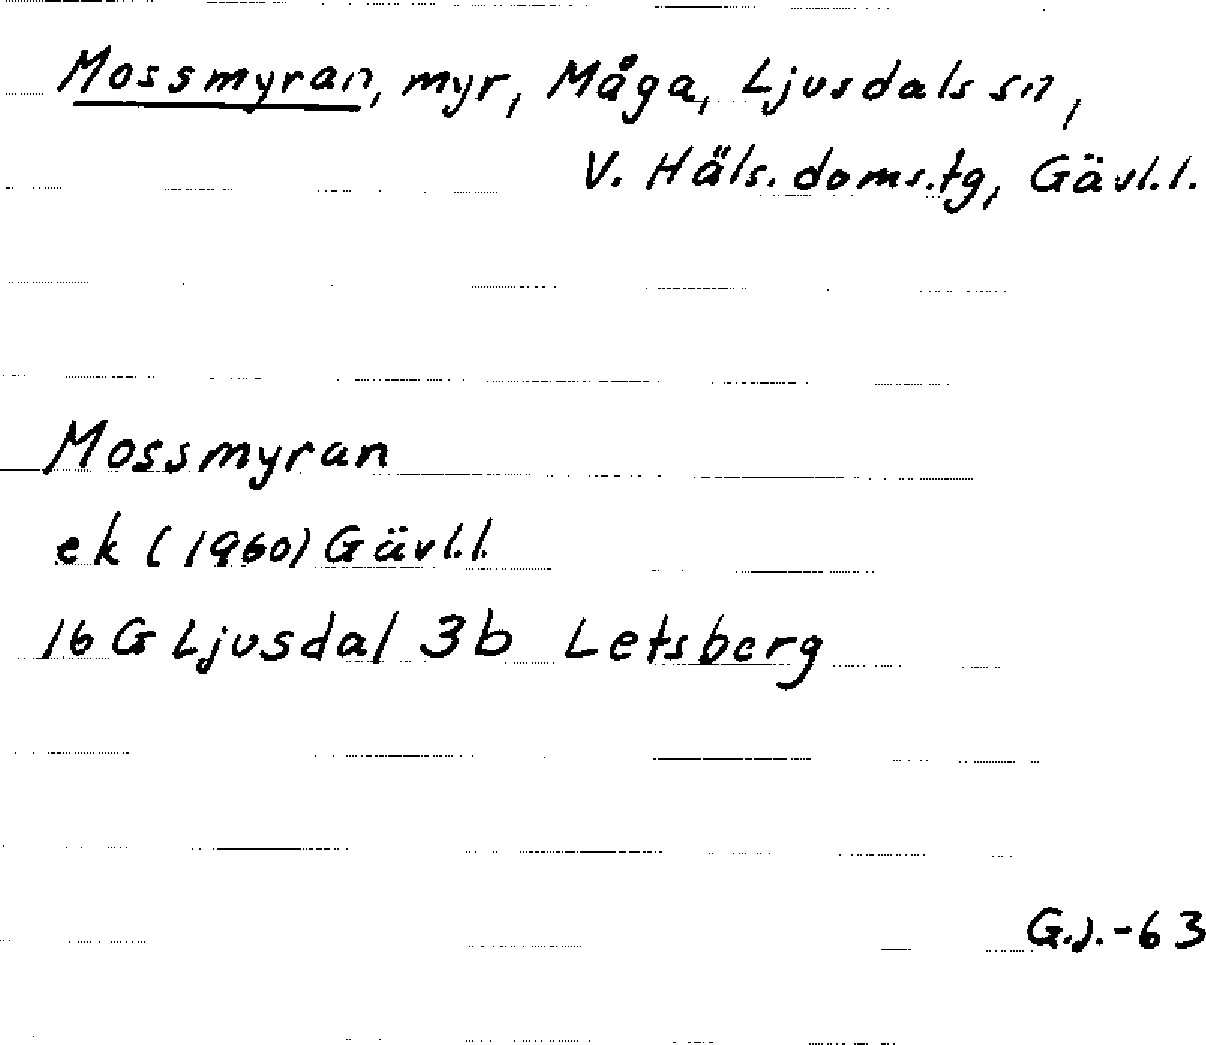 Mossmyran, myr, Måga, Ljusdals sn,
V. Häls. doms.tg, Gävl.l.
Mossmyran
ek (1960) Gävl.l.
16 G Ljusdal 3b Letsberg
G.J.-63